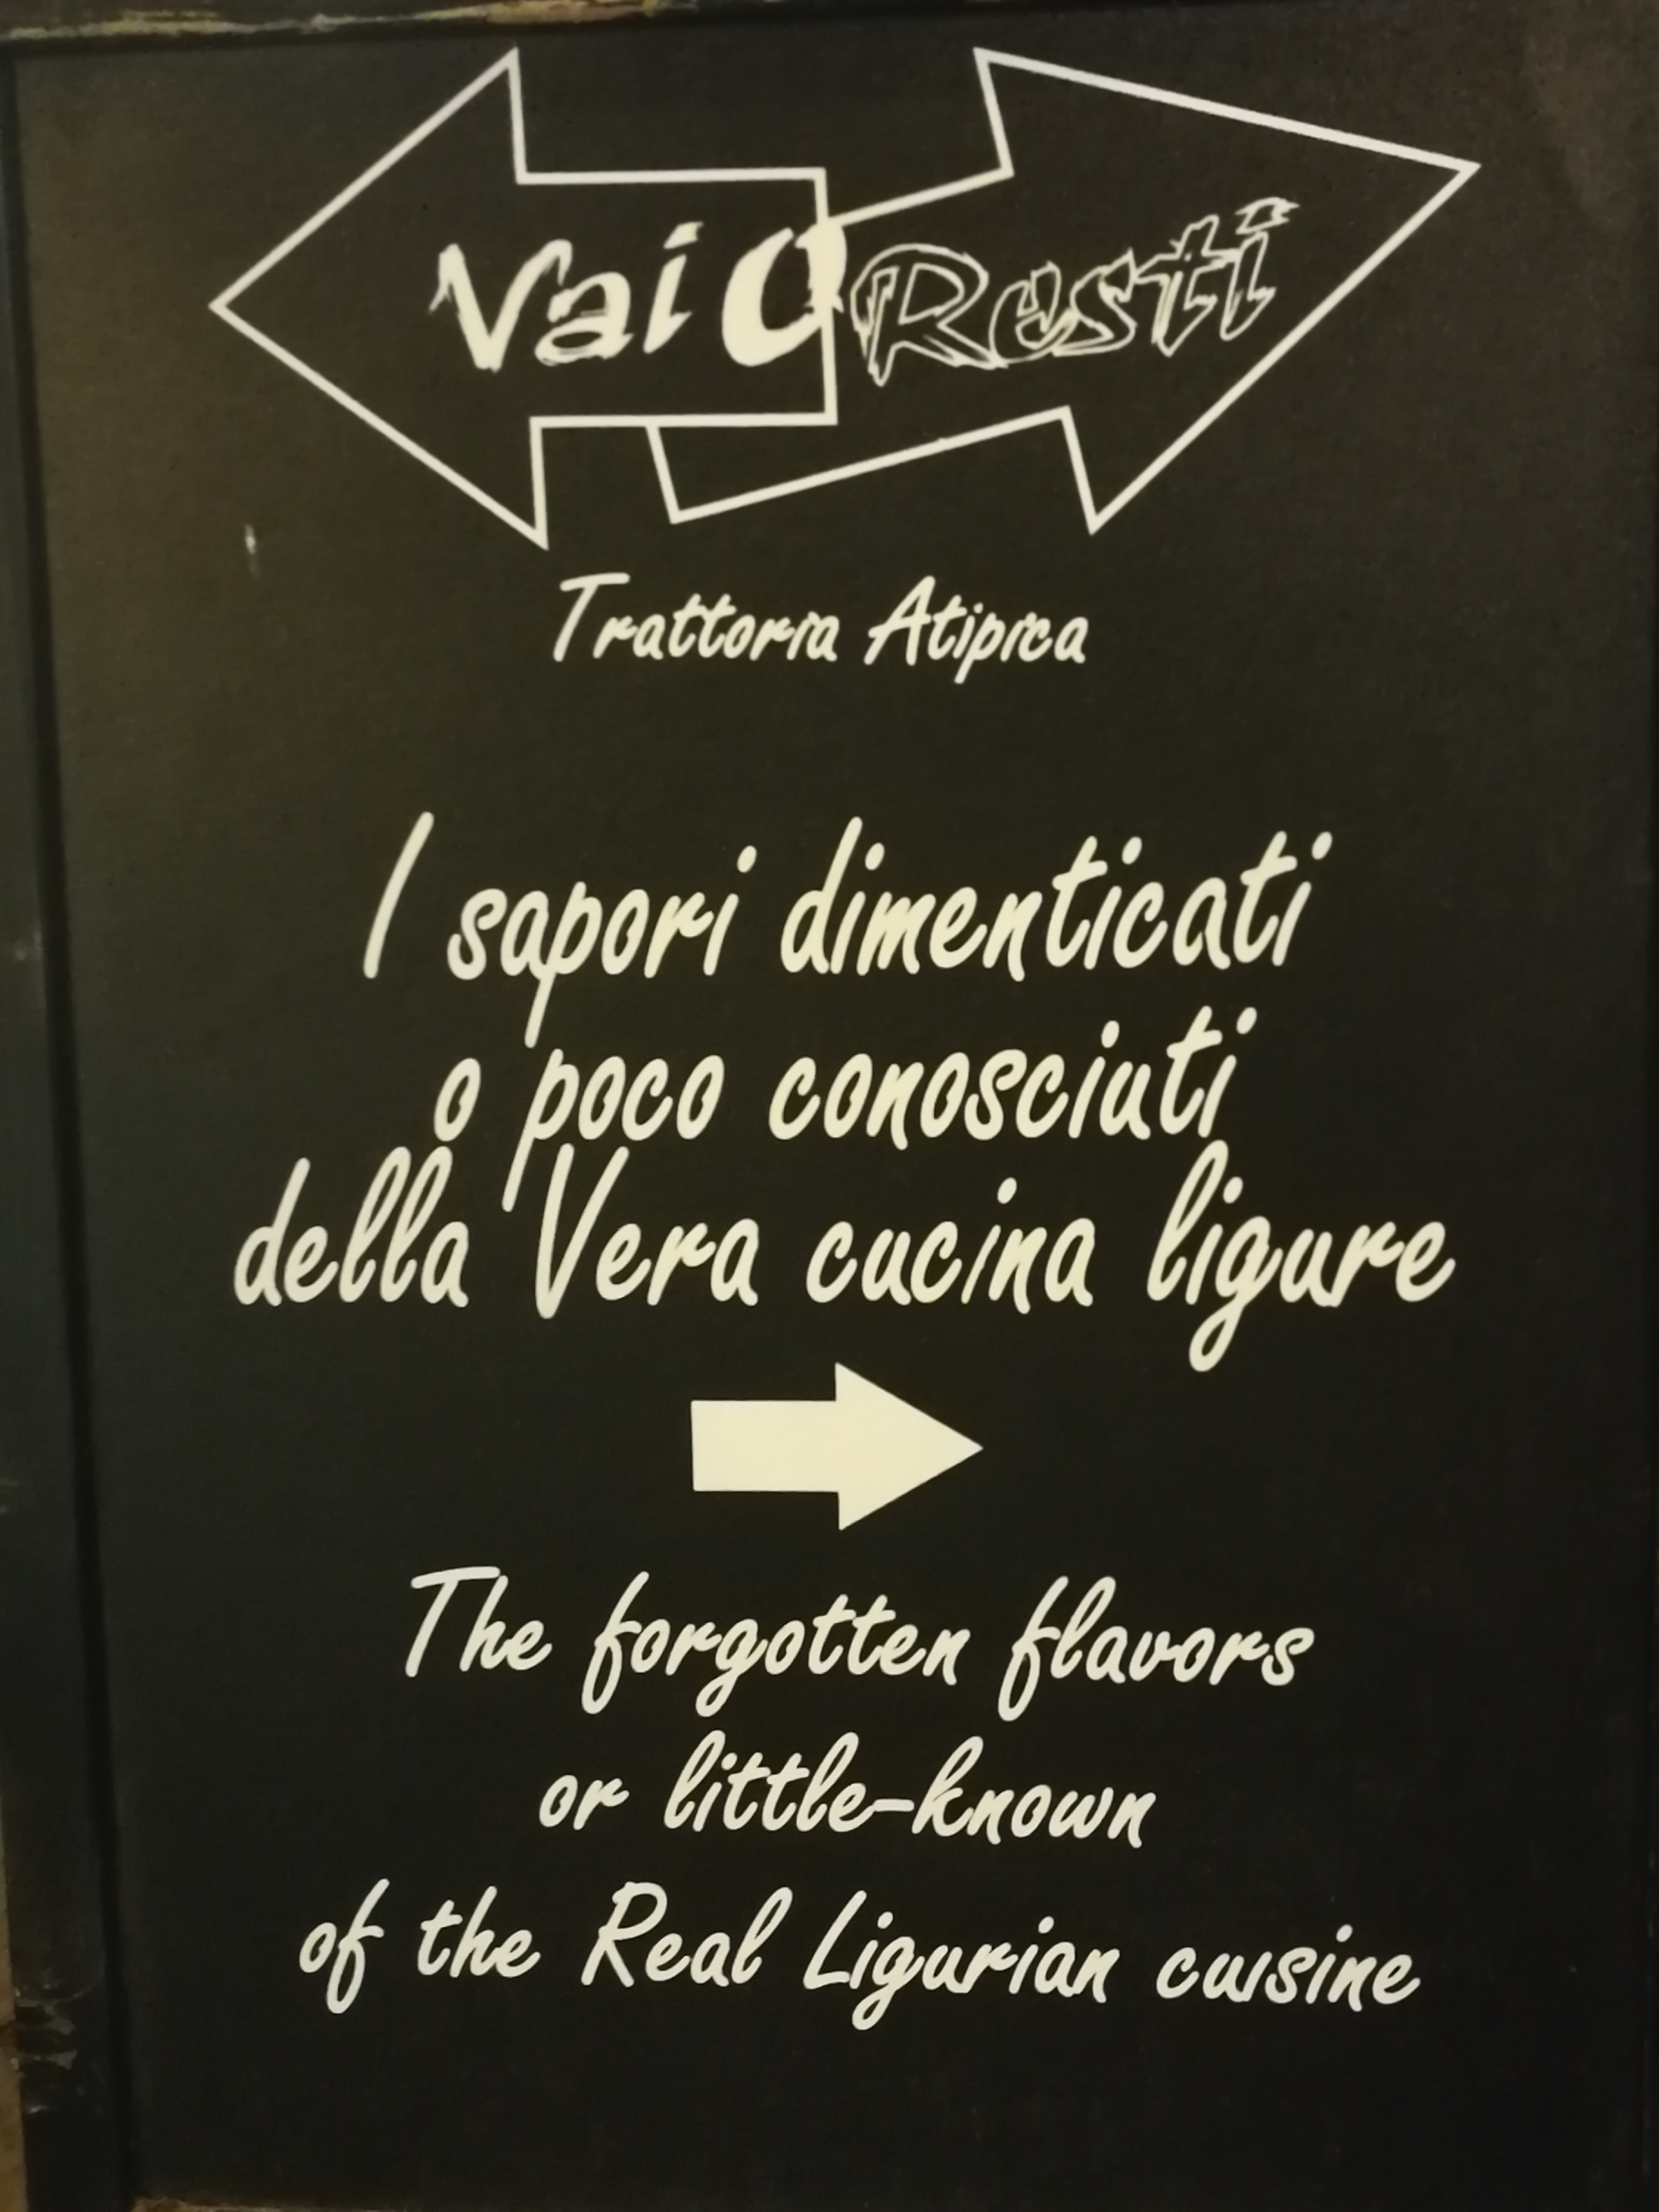 Vai O Resti
Trattoria Atipica
I sapori dimenticati
o poco conosciuti
della Vera cucina ligure
The forgotten flavors
or little-known
of the Real Ligurian cuisine